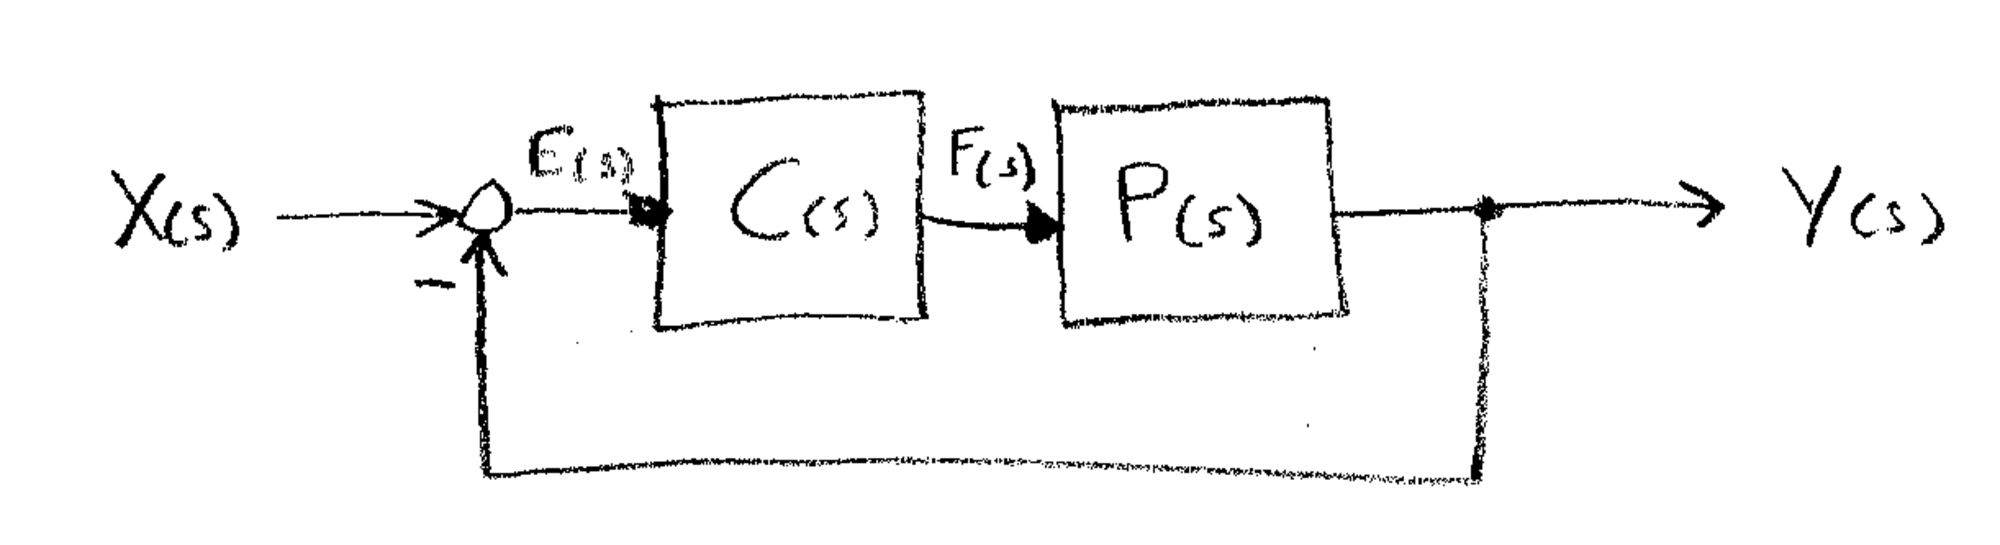 X(s) E(s) C(s) F(s) P(s) Y(s)
−